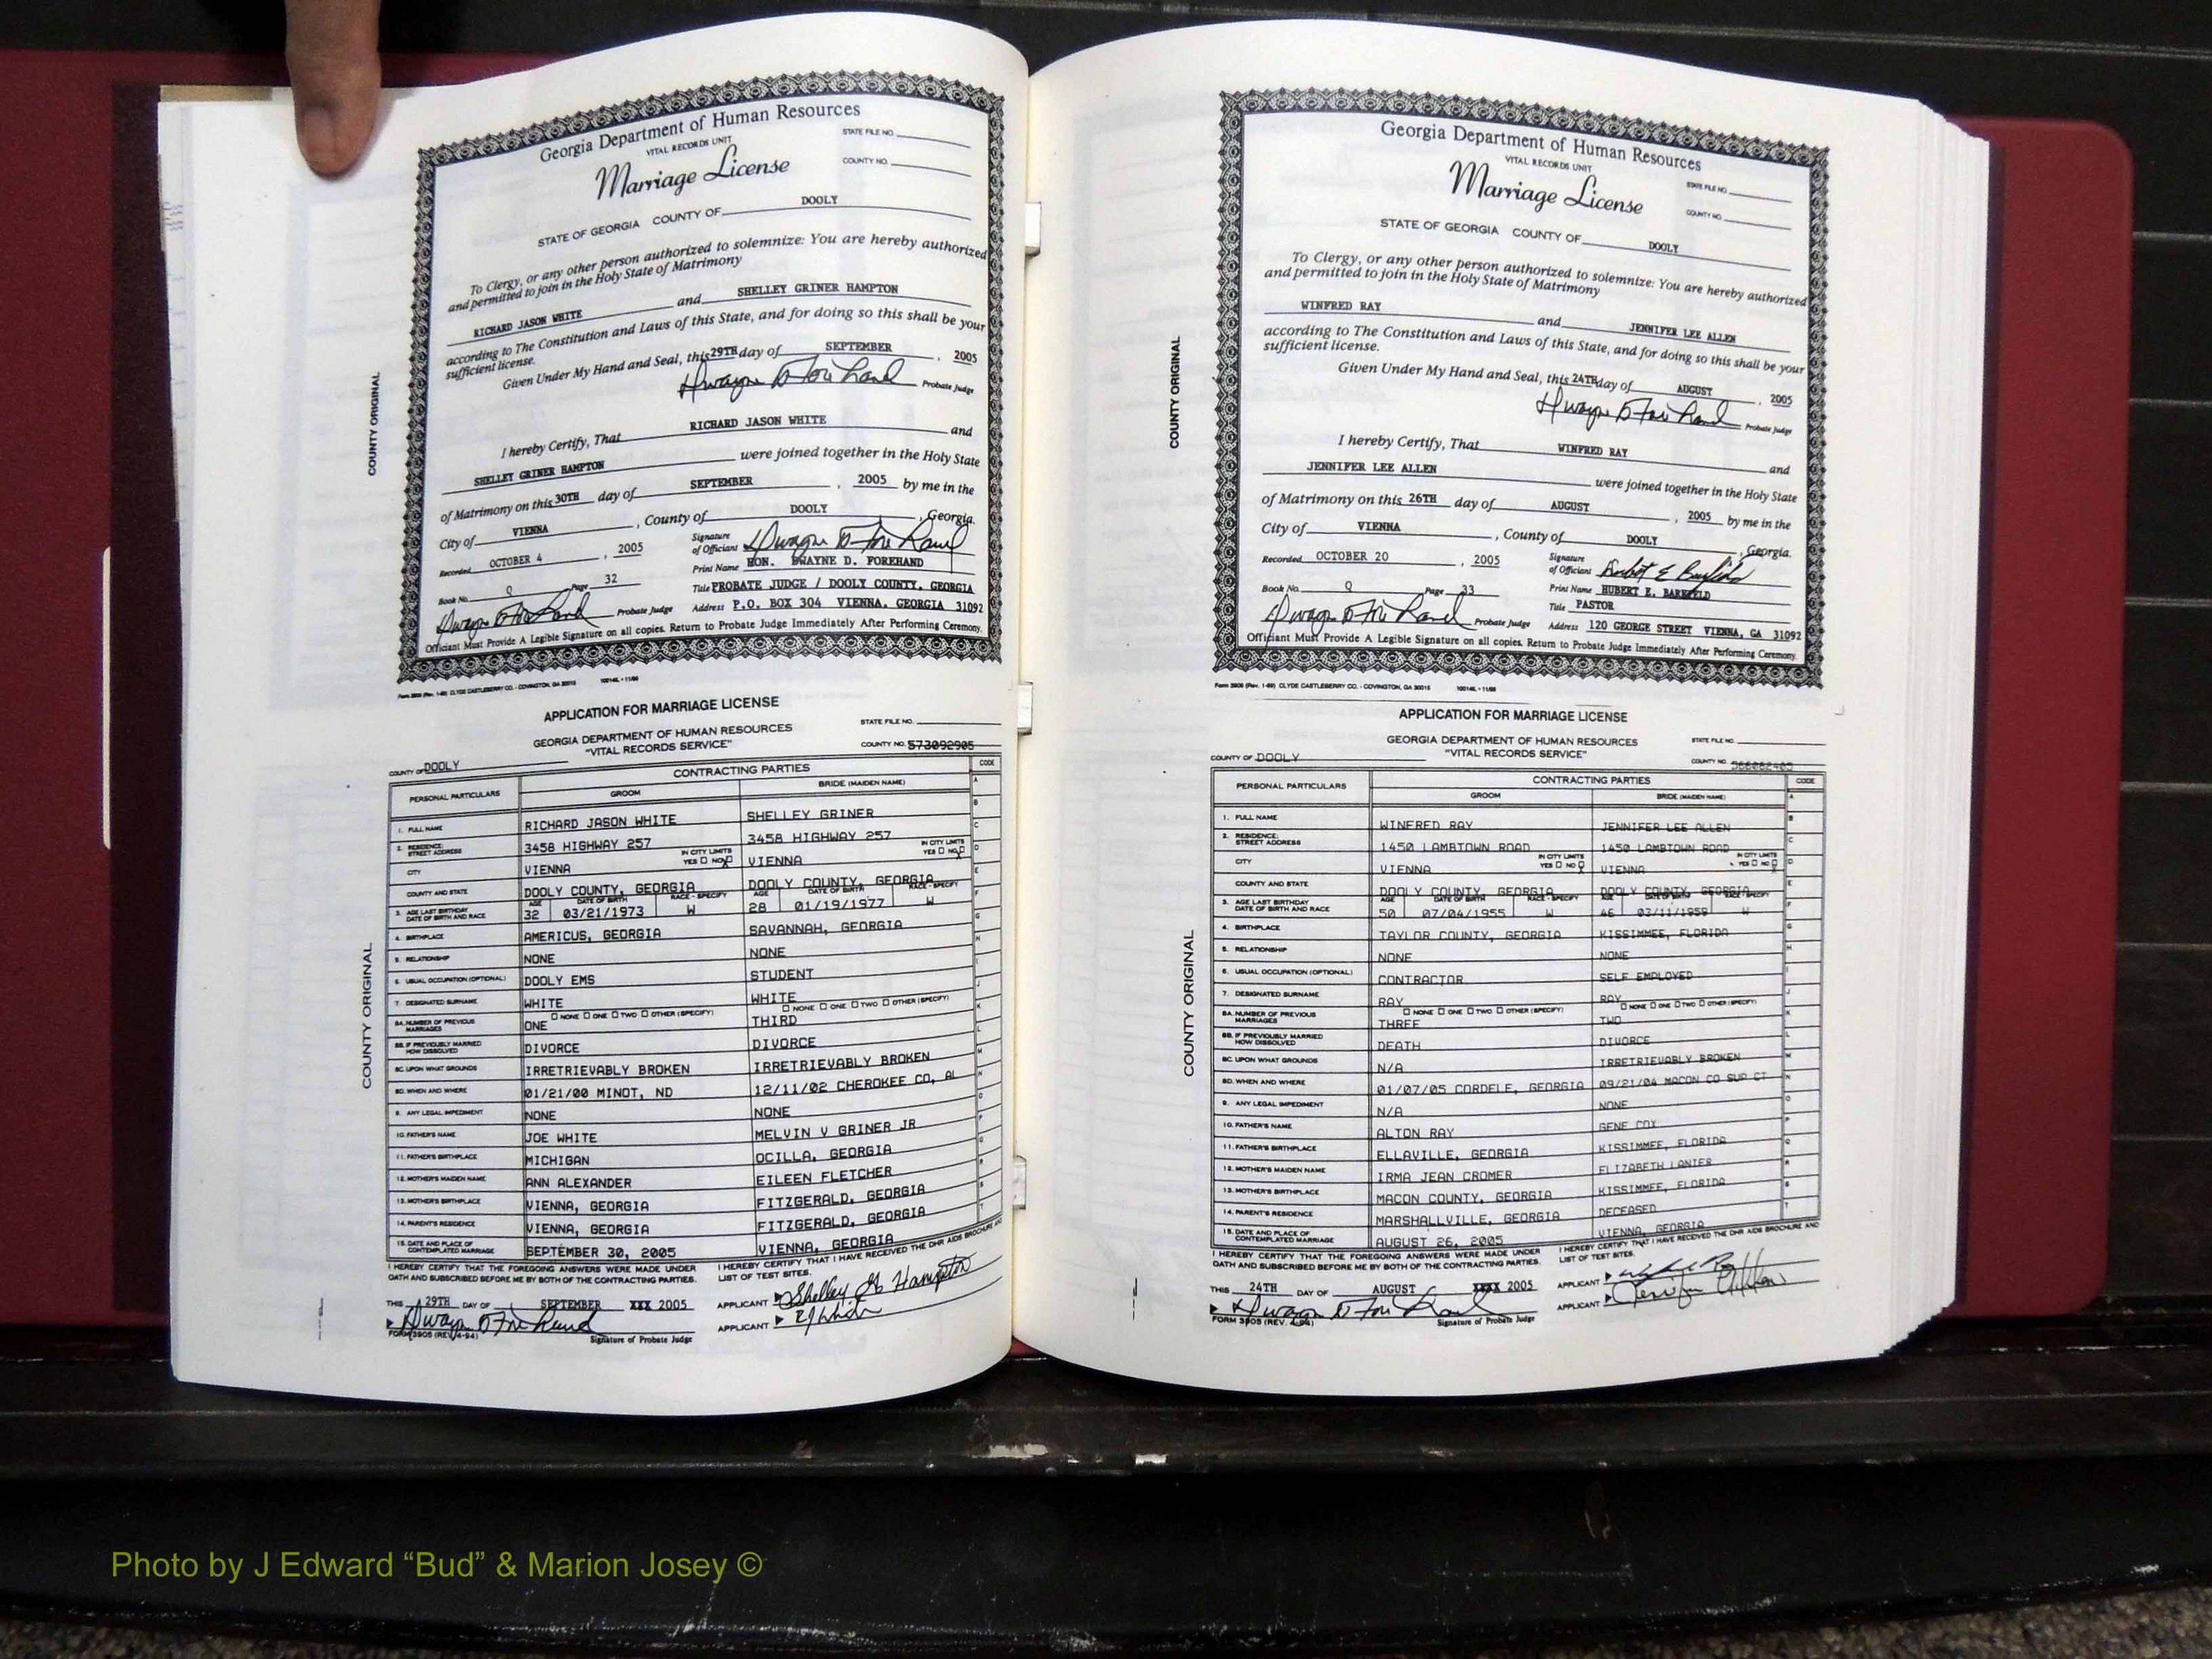 Georgia Department of Human Resources
VITAL RECORDS UNIT
STATE FILE NO.
Marriage License
COUNTY NO.
STATE OF GEORGIA COUNTY OF DOOLY
To Clergy, or any other person authorized to solemnize: You are hereby authorized
and permitted to join in the Holy State of Matrimony
RICHARD JASON WHITE and SHELLEY GRINER HAMPTON
according to The Constitution and Laws of this State, and for doing so this shall be your
sufficient license.
Given Under My Hand and Seal, this 29TH day of SEPTEMBER, 2005
Probate Judge
I hereby Certify, That RICHARD JASON WHITE and
SHELLEY GRINER HAMPTON were joined together in the Holy State
of Matrimony on this 30TH day of SEPTEMBER, 2005 by me in the
City of VIENNA, County of DOOLY, Georgia.
Recorded OCTOBER 4, 2005 Signature of Officiant
Print Name HON. DWAYNE D. FOREHAND
Book No. Q Page 32 Title PROBATE JUDGE / DOOLY COUNTY, GEORGIA
Probate Judge Address P.O. BOX 304 VIENNA, GEORGIA 31092
Officiant Must Provide A Legible Signature on all copies. Return to Probate Judge Immediately After Performing Ceremony.
COUNTY ORIGINAL
Form 3906 (Rev. 1-89) CLYDE CASTLEBERRY CO. - COVINGTON, GA 30015
APPLICATION FOR MARRIAGE LICENSE
GEORGIA DEPARTMENT OF HUMAN RESOURCES
"VITAL RECORDS SERVICE"
STATE FILE NO.
COUNTY NO. 573092905
COUNTY OF DOOLY
PERSONAL PARTICULARS CONTRACTING PARTIES CODE
GROOM BRIDE (MAIDEN NAME)
1. FULL NAME RICHARD JASON WHITE SHELLEY GRINER
2. RESIDENCE: STREET ADDRESS 3458 HIGHWAY 257 3458 HIGHWAY 257
CITY VIENNA IN CITY LIMITS YES NO VIENNA IN CITY LIMITS YES NO
COUNTY AND STATE DOOLY COUNTY, GEORGIA DOOLY COUNTY, GEORGIA
3. AGE LAST BIRTHDAY DATE OF BIRTH AND RACE AGE 32 DATE OF BIRTH 03/21/1973 RACE - SPECIFY W AGE 28 DATE OF BIRTH 01/19/1977 RACE - SPECIFY W
4. BIRTHPLACE AMERICUS, GEORGIA SAVANNAH, GEORGIA
5. RELATIONSHIP NONE NONE
6. USUAL OCCUPATION (OPTIONAL) DOOLY EMS STUDENT
7. DESIGNATED SURNAME WHITE WHITE
8A. NUMBER OF PREVIOUS MARRIAGES NONE ONE TWO OTHER (SPECIFY) ONE NONE ONE TWO OTHER (SPECIFY) THIRD
8B. IF PREVIOUSLY MARRIED HOW DISSOLVED DIVORCE DIVORCE
8C. UPON WHAT GROUNDS IRRETRIEVABLY BROKEN IRRETRIEVABLY BROKEN
8D. WHEN AND WHERE 01/21/00 MINOT, ND 12/11/02 CHEROKEE CO, AL
9. ANY LEGAL IMPEDIMENT NONE NONE
10. FATHER'S NAME JOE WHITE MELVIN V GRINER JR
11. FATHER'S BIRTHPLACE MICHIGAN OCILLA, GEORGIA
12. MOTHER'S MAIDEN NAME ANN ALEXANDER EILEEN FLETCHER
13. MOTHER'S BIRTHPLACE VIENNA, GEORGIA FITZGERALD, GEORGIA
14. PARENT'S RESIDENCE VIENNA, GEORGIA FITZGERALD, GEORGIA
15. DATE AND PLACE OF CONTEMPLATED MARRIAGE SEPTEMBER 30, 2005 VIENNA, GEORGIA
I HEREBY CERTIFY THAT THE FOREGOING ANSWERS WERE MADE UNDER
OATH AND SUBSCRIBED BEFORE ME BY BOTH OF THE CONTRACTING PARTIES.
I HEREBY CERTIFY THAT I HAVE RECEIVED THE DHR AIDS BROCHURE AND
LIST OF TEST SITES.
THIS 29TH DAY OF SEPTEMBER XXX 2005
APPLICANT Shelley G Hampton
APPLICANT
FORM 3905 (REV. 4-94) Signature of Probate Judge
COUNTY ORIGINAL
Georgia Department of Human Resources
VITAL RECORDS UNIT
STATE FILE NO.
Marriage License
COUNTY NO.
STATE OF GEORGIA COUNTY OF DOOLY
To Clergy, or any other person authorized to solemnize: You are hereby authorized
and permitted to join in the Holy State of Matrimony
WINFRED RAY and JENNIFER LEE ALLEN
according to The Constitution and Laws of this State, and for doing so this shall be your
sufficient license.
Given Under My Hand and Seal, this 24TH day of AUGUST, 2005
Probate Judge
I hereby Certify, That WINFRED RAY and
JENNIFER LEE ALLEN were joined together in the Holy State
of Matrimony on this 26TH day of AUGUST, 2005 by me in the
City of VIENNA, County of DOOLY, Georgia.
Recorded OCTOBER 20, 2005 Signature of Officiant
Print Name HUBERT E. BAREFIELD
Book No. Q Page 33 Title PASTOR
Probate Judge Address 120 GEORGE STREET VIENNA, GA 31092
Officiant Must Provide A Legible Signature on all copies. Return to Probate Judge Immediately After Performing Ceremony.
COUNTY ORIGINAL
Form 3906 (Rev. 1-89) CLYDE CASTLEBERRY CO. - COVINGTON, GA 30015
APPLICATION FOR MARRIAGE LICENSE
GEORGIA DEPARTMENT OF HUMAN RESOURCES
"VITAL RECORDS SERVICE"
STATE FILE NO.
COUNTY NO.
COUNTY OF DOOLY
PERSONAL PARTICULARS CONTRACTING PARTIES CODE
GROOM BRIDE (MAIDEN NAME)
1. FULL NAME WINFRED RAY JENNIFER LEE ALLEN
2. RESIDENCE: STREET ADDRESS 1450 LAMBTOWN ROAD 1450 LAMBTOWN ROAD
CITY VIENNA IN CITY LIMITS YES NO VIENNA IN CITY LIMITS YES NO
COUNTY AND STATE DOOLY COUNTY, GEORGIA DOOLY COUNTY, GEORGIA
3. AGE LAST BIRTHDAY DATE OF BIRTH AND RACE AGE 50 DATE OF BIRTH 07/04/1955 RACE - SPECIFY W AGE 46 DATE OF BIRTH 03/11/1959 RACE - SPECIFY W
4. BIRTHPLACE TAYLOR COUNTY, GEORGIA KISSIMMEE, FLORIDA
5. RELATIONSHIP NONE NONE
6. USUAL OCCUPATION (OPTIONAL) CONTRACTOR SELF EMPLOYED
7. DESIGNATED SURNAME RAY RAY
8A. NUMBER OF PREVIOUS MARRIAGES NONE ONE TWO OTHER (SPECIFY) THREE NONE ONE TWO OTHER (SPECIFY) TWO
8B. IF PREVIOUSLY MARRIED HOW DISSOLVED DEATH DIVORCE
8C. UPON WHAT GROUNDS N/A IRRETRIEVABLY BROKEN
8D. WHEN AND WHERE 01/07/05 CORDELE, GEORGIA 09/21/04 MACON CO SUP CT
9. ANY LEGAL IMPEDIMENT N/A NONE
10. FATHER'S NAME ALTON RAY GENE COX
11. FATHER'S BIRTHPLACE ELLAVILLE, GEORGIA KISSIMMEE, FLORIDA
12. MOTHER'S MAIDEN NAME IRMA JEAN CROMER ELIZABETH LANIER
13. MOTHER'S BIRTHPLACE MACON COUNTY, GEORGIA KISSIMMEE, FLORIDA
14. PARENT'S RESIDENCE MARSHALLVILLE, GEORGIA DECEASED
15. DATE AND PLACE OF CONTEMPLATED MARRIAGE AUGUST 26, 2005 VIENNA, GEORGIA
I HEREBY CERTIFY THAT THE FOREGOING ANSWERS WERE MADE UNDER
OATH AND SUBSCRIBED BEFORE ME BY BOTH OF THE CONTRACTING PARTIES.
I HEREBY CERTIFY THAT I HAVE RECEIVED THE DHR AIDS BROCHURE AND
LIST OF TEST SITES.
THIS 24TH DAY OF AUGUST XXXX 2005
APPLICANT
APPLICANT
FORM 3905 (REV. 4-94) Signature of Probate Judge
COUNTY ORIGINAL
Photo by J Edward “Bud” & Marion Josey ©